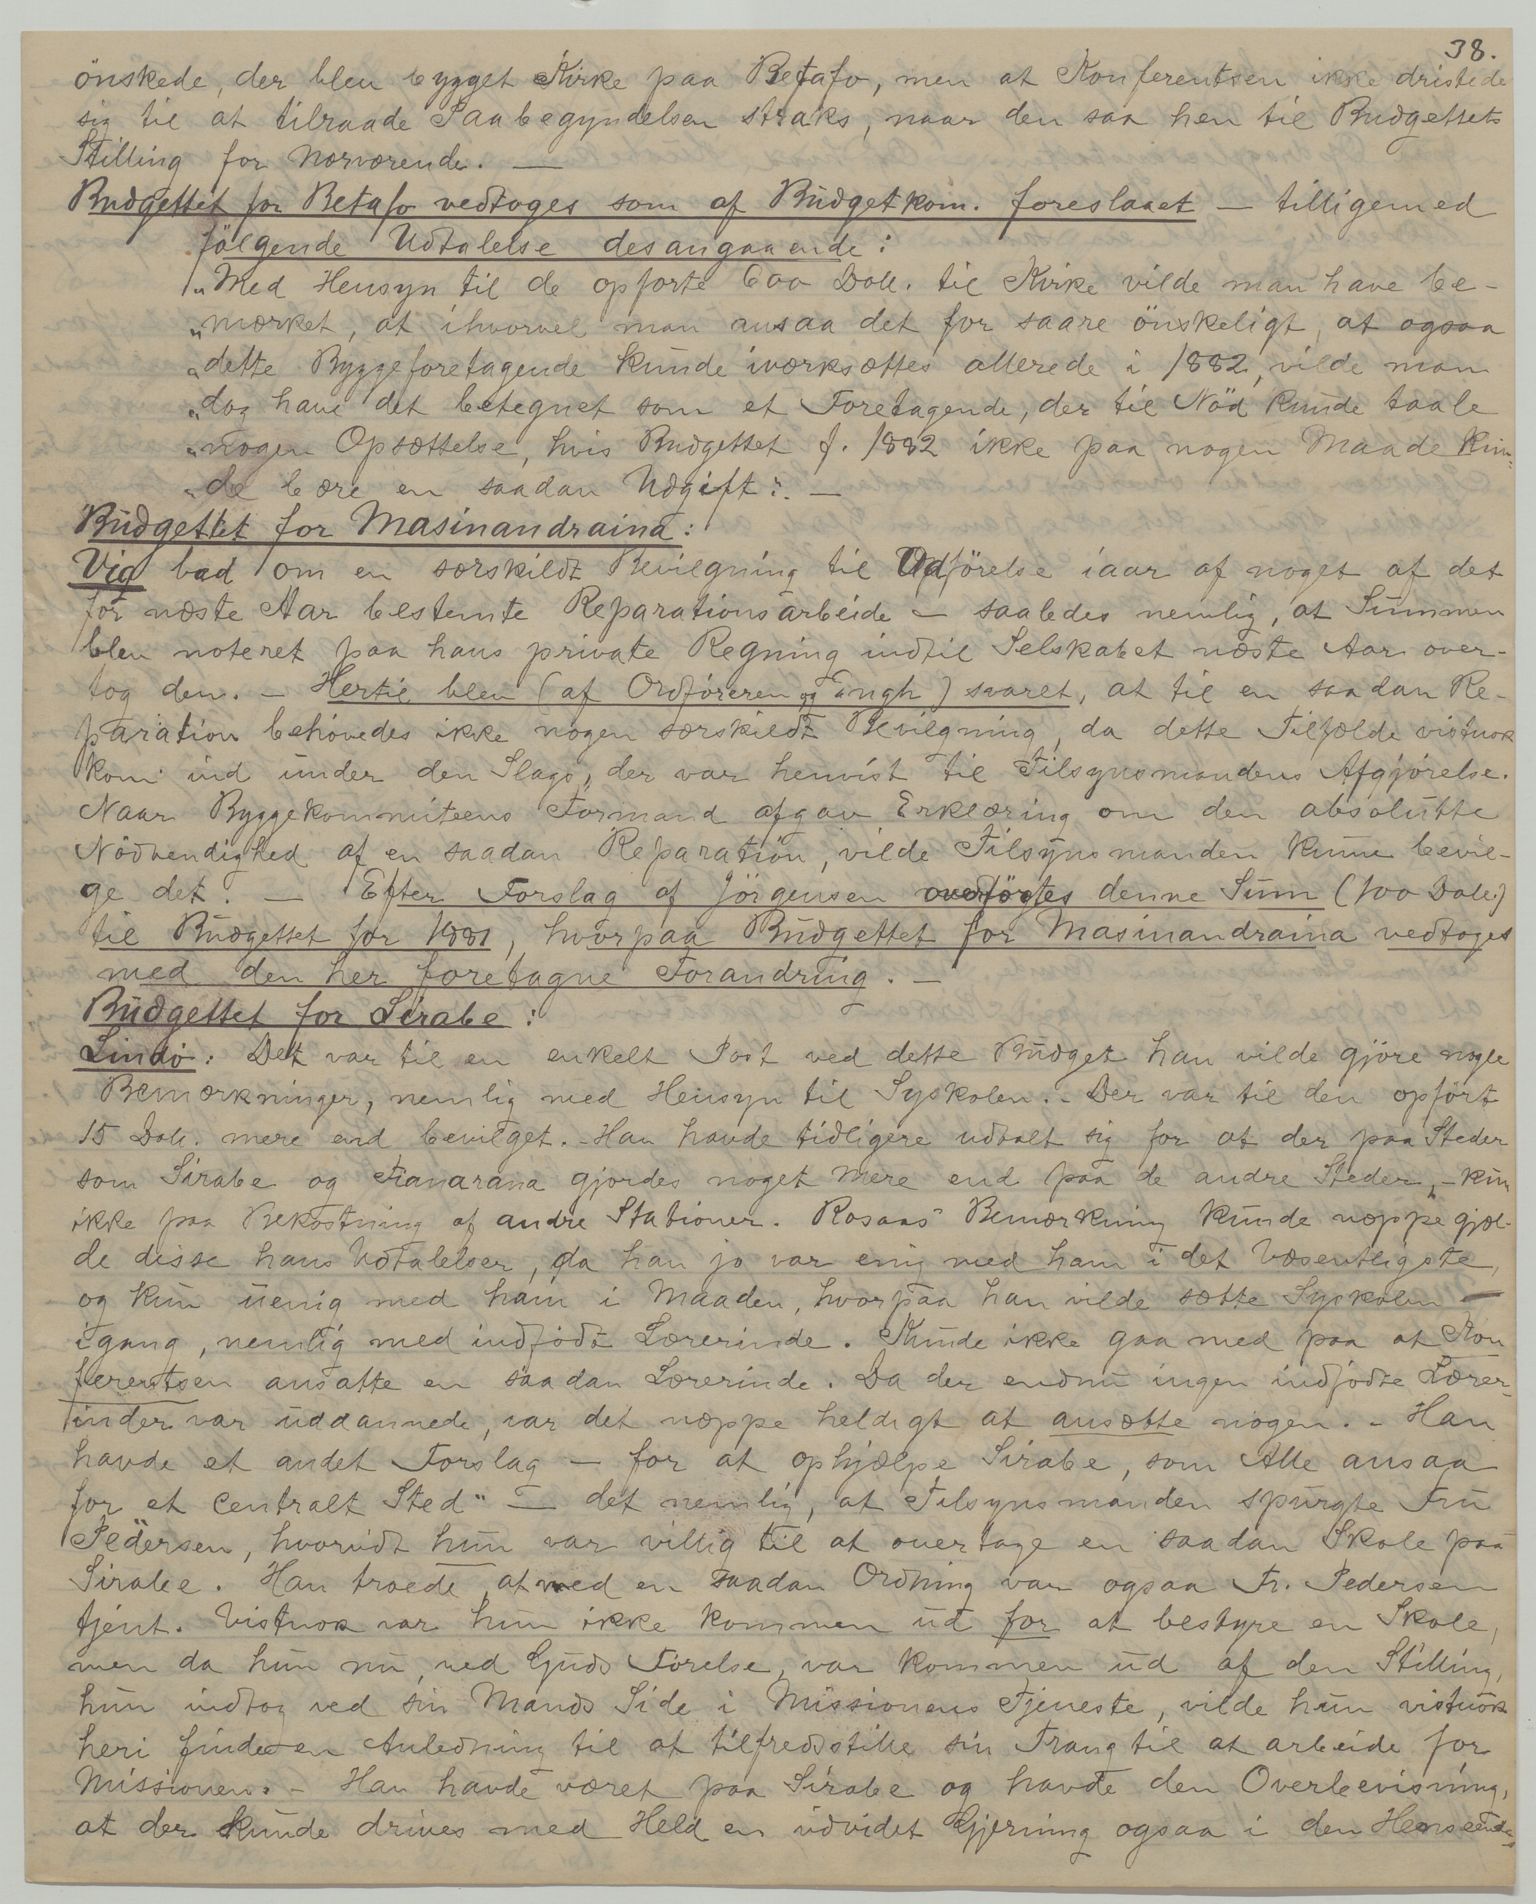 38.
önskede, der blev bygget Kirke paa Betafo, men at Konferentsen ikke dristede
sig til at tilraade Paabegyndelsen straks, naar den saa hen til Budgettets
Stilling for Nærværende. —
Budgettet for Betafo vedtoges som af Budgetkom. foreslaaet — tilligemed
følgende Udtalelse desangaaende:
"Med Hensyn til de opførte 600 Doll. til Kirke vilde man have be-
"mærket, at ihvorvel man ansaa det for saare önskeligt, at ogsaa
"dette Byggeforetagende kunde iværksættes allerede i 1882, vilde man
"dog have det betegnet som et Foretagende, der til Nöd kunde taale
"nogen Opsættelse, hvis Budgettet f. 1882 ikke paa nogen Maade kun-
"de bære en saadan Udgift". —
Budgettet for Masinandraina:
Vig bad om en særskildt Bevilgning til Udförelse iaar af noget af det
for næste Aar bestemte Reparationsarbeide — saaledes nemlig, at Summen
blev noteret paa hans private Regning indtil Selskabet næste Aar over-
tog den. — Hertil blev (af Ordföreren og Engh) svaret, at til en saadan Re-
paration behövedes ikke nogen særskildt Bevilgning, da dette Tilfælde vistnok
kom ind under den Slags, der var henvist til Tilsynsmandens Afgjörelse.
Naar Byggekommiteens Formand afgav Erklæring om den absolutte
Nödvendighed af en saadan Reparation, vilde Tilsynsmanden kunne bevil-
ge det. — Efter Forslag af Jörgensen overförtes denne Sum (100 Doll.)
til Budgettet for 1881, hvorpaa Budgettet for Masinandraina vedtoges
med den her foretagne Forandring. —
Budgettet for Sirabe:
Lindö: Det var til en enkelt Post ved dette Budget han vilde gjöre nogle
Bemærkninger, nemlig med Hensyn til Syskolen. - Der var til den opfört
15 Doll. mere end bevilget. - Han havde tidligere udtalt sig for at der paa Steder
som Sirabe og Fianarana gjordes noget mere end paa de andre Steder, - kun
ikke paa Bekostning af andre Stationer. Rosaas' Bemærkning kunde næppe gjæl-
de disse hans Udtalelser, da han jo var enig med ham i det Væsentligste,
og kun uenig med ham i Maaden, hvorpaa han vilde sætte Syskolen —
igang, nemlig med indfödt Lærerinde. Kunde ikke gaa med paa at Kon
ferentsen ansatte en saadan Lærerinde. Da der endnu ingen indfödte Lærer-
inder var uddannede, var det næppe heldigt at ansætte nogen. - Han
havde et andet Forslag — for at ophjælpe Sirabe, som Alle ansaa
for et "centralt Sted" — det nemlig, at Tilsynsmanden spurgte Fru
Pedersen, hvorvidt hun var villig til at overtage en saadan Skole paa
Sirabe. Han troede, at med en saadan Ordning var ogsaa Fr. Pedersen
tjent. Vistnok var hun ikke kommen ud for at bestyre en Skole,
men da hun nu, ved Guds Förelse, var kommen ud af den Stilling,
hun indtog ved sin Mands Side i Missionens Tjeneste, vilde hun vistnok
heri finde en Anledning til at tilfredsstille sin Trang til at arbeide for
Missionen. - Han havde været paa Sirabe og havde den Overbevisning,
at der kunde drives med Held en udvidet Gjerning ogsaa i den Henseende